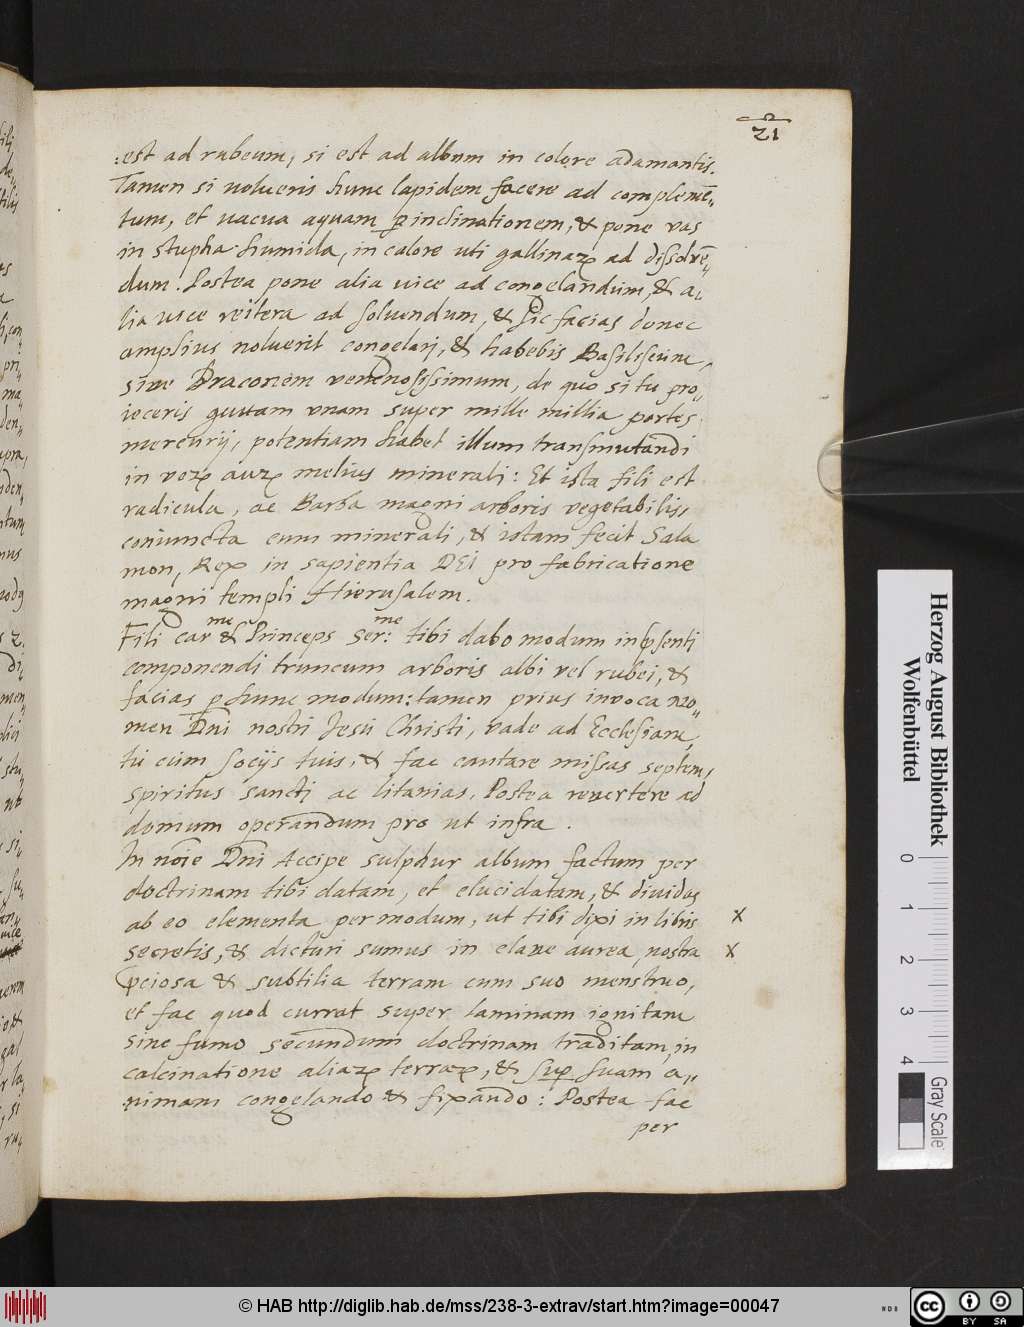 21
est ad rubeum, si est ad album in colore adamantis.
Tamen si volueris hunc lapidem facere ad complemē„
tum, et vacua aquam ꝑ inclinationem, & pone vas
in stupha humida, in calore uti gallinaꝝ ad dissolvē„
dum. Postea pone alia vice ad congelandum, & a„
lia vice reitera ad soluendum, & sic facias donec
amplius noluerit congelarj, & habebis Basiliscum,
sive Draconem venenosissimum, de quo si tu pro„
ieceris guttam vnam super mille millia partes
mercurij, potentiam habet illum transmutandi
in veꝝ auꝝ melius minerali: Et ista fili est
radicula, ac Barba magni arboris vegetabilis,
coniuncta cum minerali, & istam fecit Sala
mon, Rex in sapientia DEI pro fabricatione
magni templi Hierusalem.
Fili carme & Princeps ser:me tibi dabo modum inpsenti
componendi truncum arboris albi vel rubei, &
facias ꝑ hunc modum: tamen prius invoca no„
men Dni nostri Jesu Christi, vade ad Ecclesiam,
tu cum socijs tuis, & fac cantare missas septem,
spiritus sancti ac litanias. Postea revertere ad
domum operandum pro ut infra.
In noīe Dni Accipe sulphur album factum per
doctrinam tibi datam, et elucidatam, & dividas
ab eo elementa per modum, ut tibi dixi in libris x
secretis, & dicturi sumus in clave aurea nostra x
pciosa & subtilia terram cum suo menstruo,
et fac quod currat super laminam ignitam
sine fumo secundum doctrinam traditam, in
calcinatione aliaꝝ terraꝝ, & suꝑ suam a„
nimam congelando & fixando: Postea fac
per
Herzog August Bibliothek
Wolfenbüttel
0 1 2 3 4
Gray Scale
© HAB http://diglib.hab.de/mss/238-3-extrav/start.htm?image=00047
cc BY SA